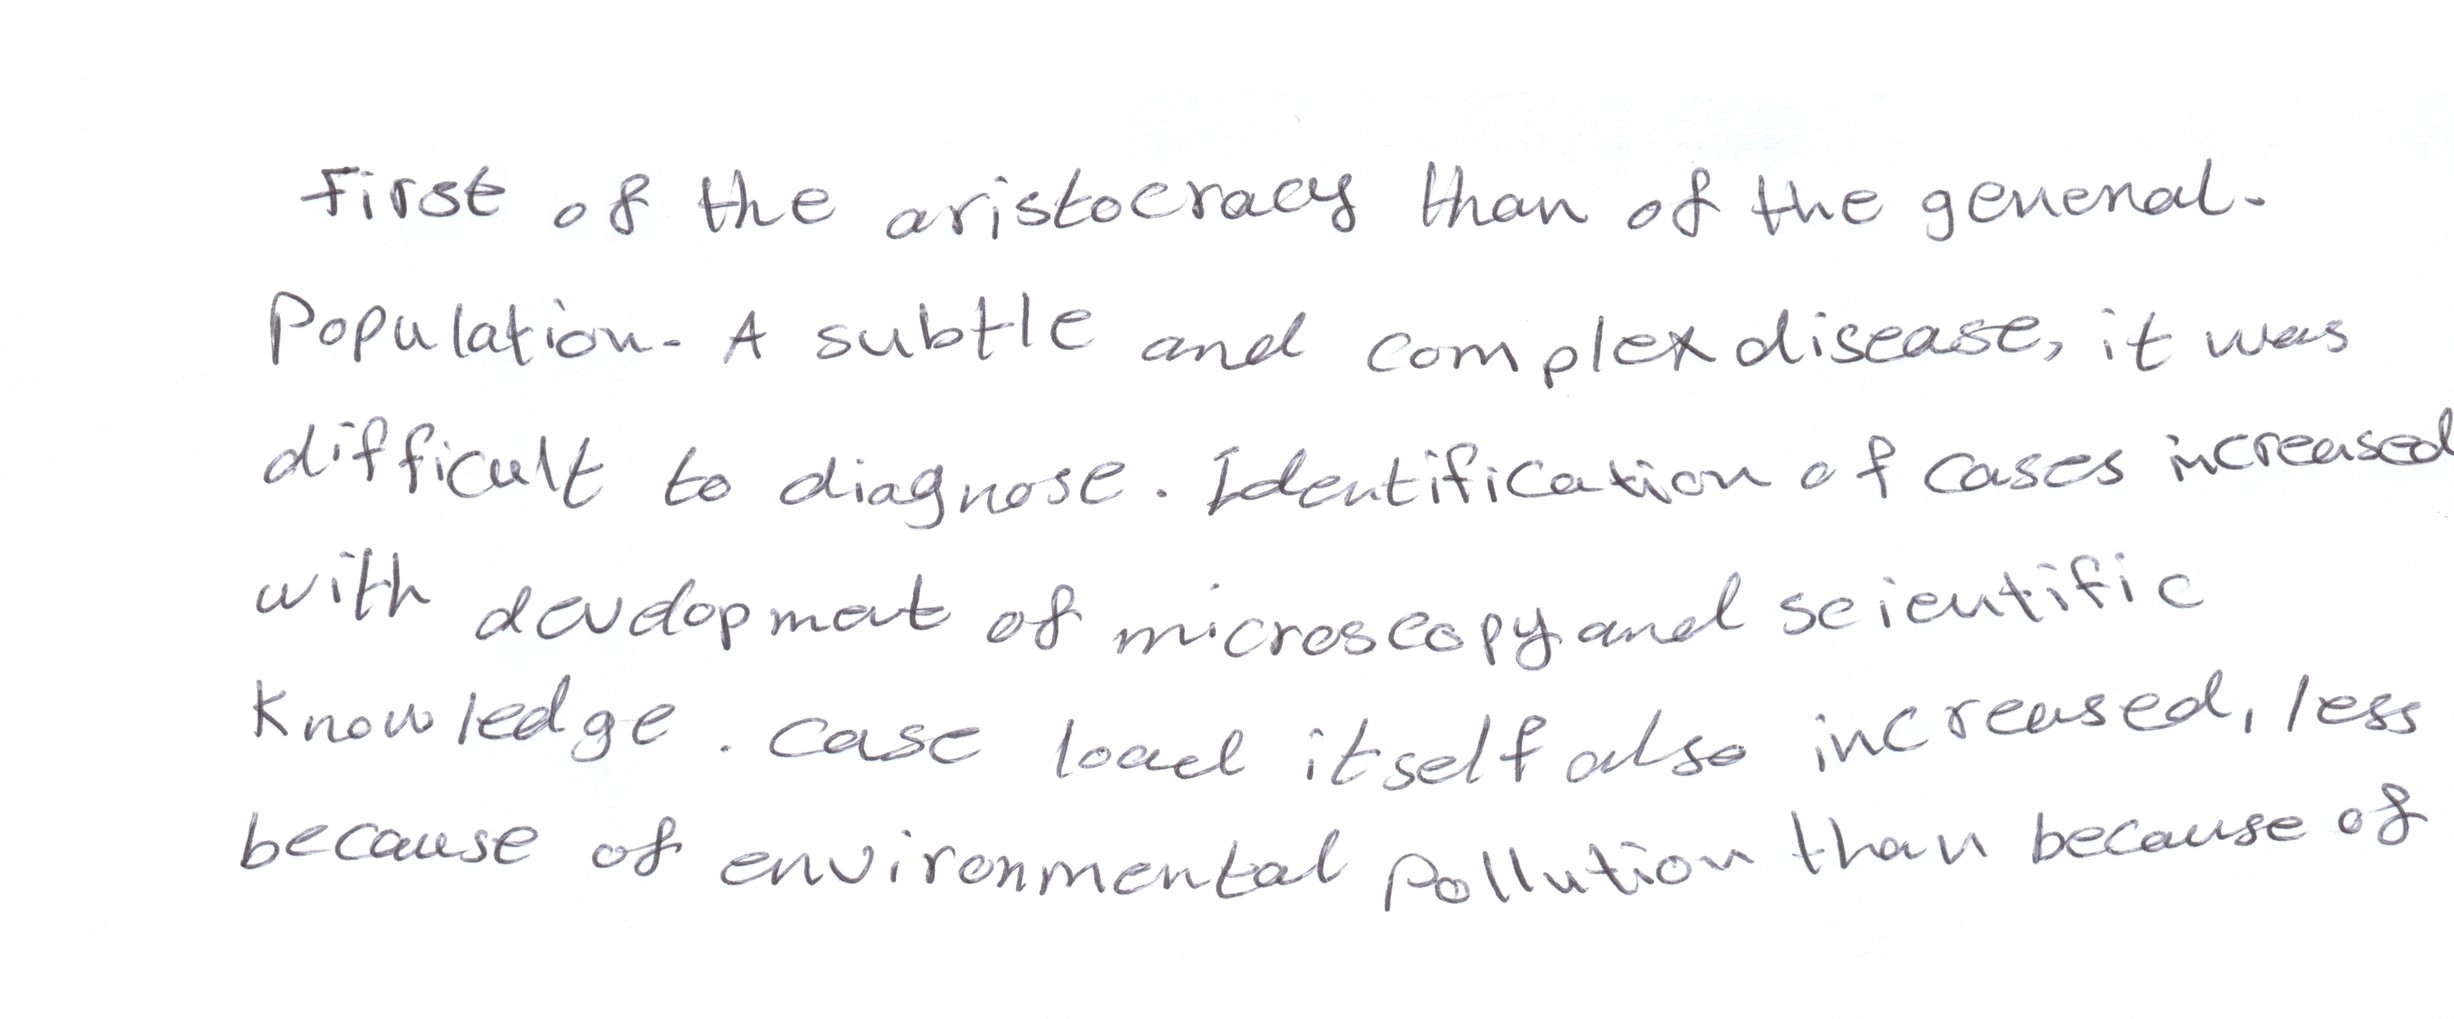 First of the aristocracy than of the general-
Population. A subtle and complex disease, it was
difficult to diagnose. Identification of cases increased
with development of microscopy and scientific
Knowledge. Case load itself also increased, less
because of environmental Pollution than because of